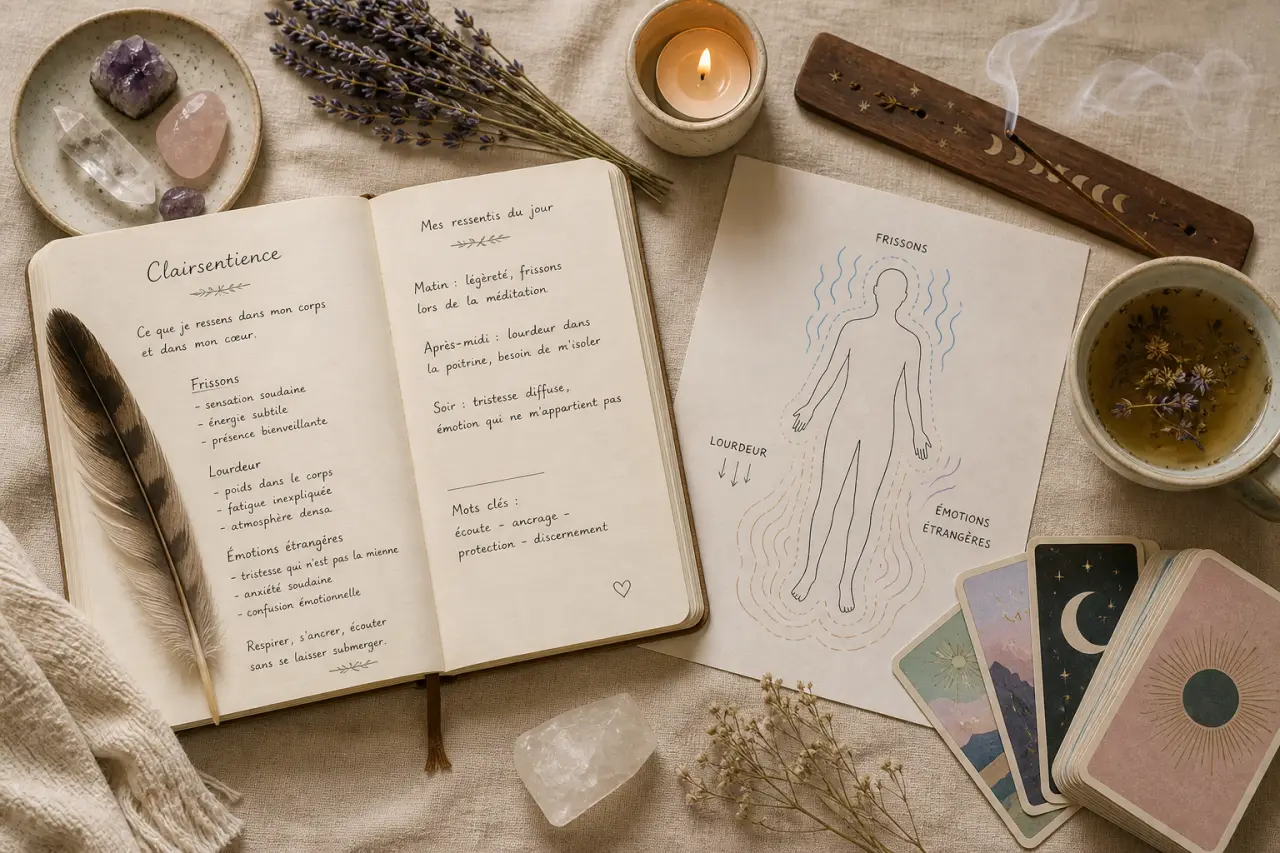 Clairsentience
Ce que je ressens dans mon corps
et dans mon cœur.
Frissons
- sensation soudaine
- énergie subtile
- présence bienveillante
Lourdeur
- poids dans le corps
- fatigue inexpliquée
- atmosphère densa
Émotions étrangères
- tristesse qui n'est pas la mienne
- anxiété soudaine
- confusion émotionnelle
Respirer, s'ancrer, écouter
sans se laisser submerger.
Mes ressentis du jour
Matin : légèreté, frissons
lors de la méditation
Après-midi : lourdeur dans
la poitrine, besoin de m'isoler
Soir : tristesse diffuse,
émotion qui ne m'appartient pas
Mots clés :
écoute - ancrage -
protection - discernement
FRISSONS
LOURDEUR
ÉMOTIONS
ÉTRANGÈRES